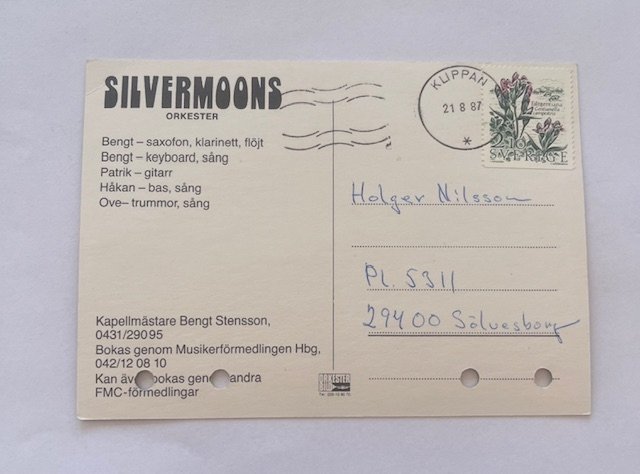 SILVERMOONS
ORKESTER
Bengt – saxofon, klarinett, flöjt
Bengt – keyboard, sång
Patrik – gitarr
Håkan – bas, sång
Ove– trummor, sång
Kapellmästare Bengt Stensson,
0431/290 95
Bokas genom Musikerförmedlingen Hbg,
042/12 08 10
Kan äv bokas gen andra
FMC-förmedlingar
KLIPPAN
21 8 87
*
Fältgentiana
Gentianella
campestris
2.10
SVERIGE
Holger Nilsson
Pl. 5311
29400 Sölvesborg
ORKESTER